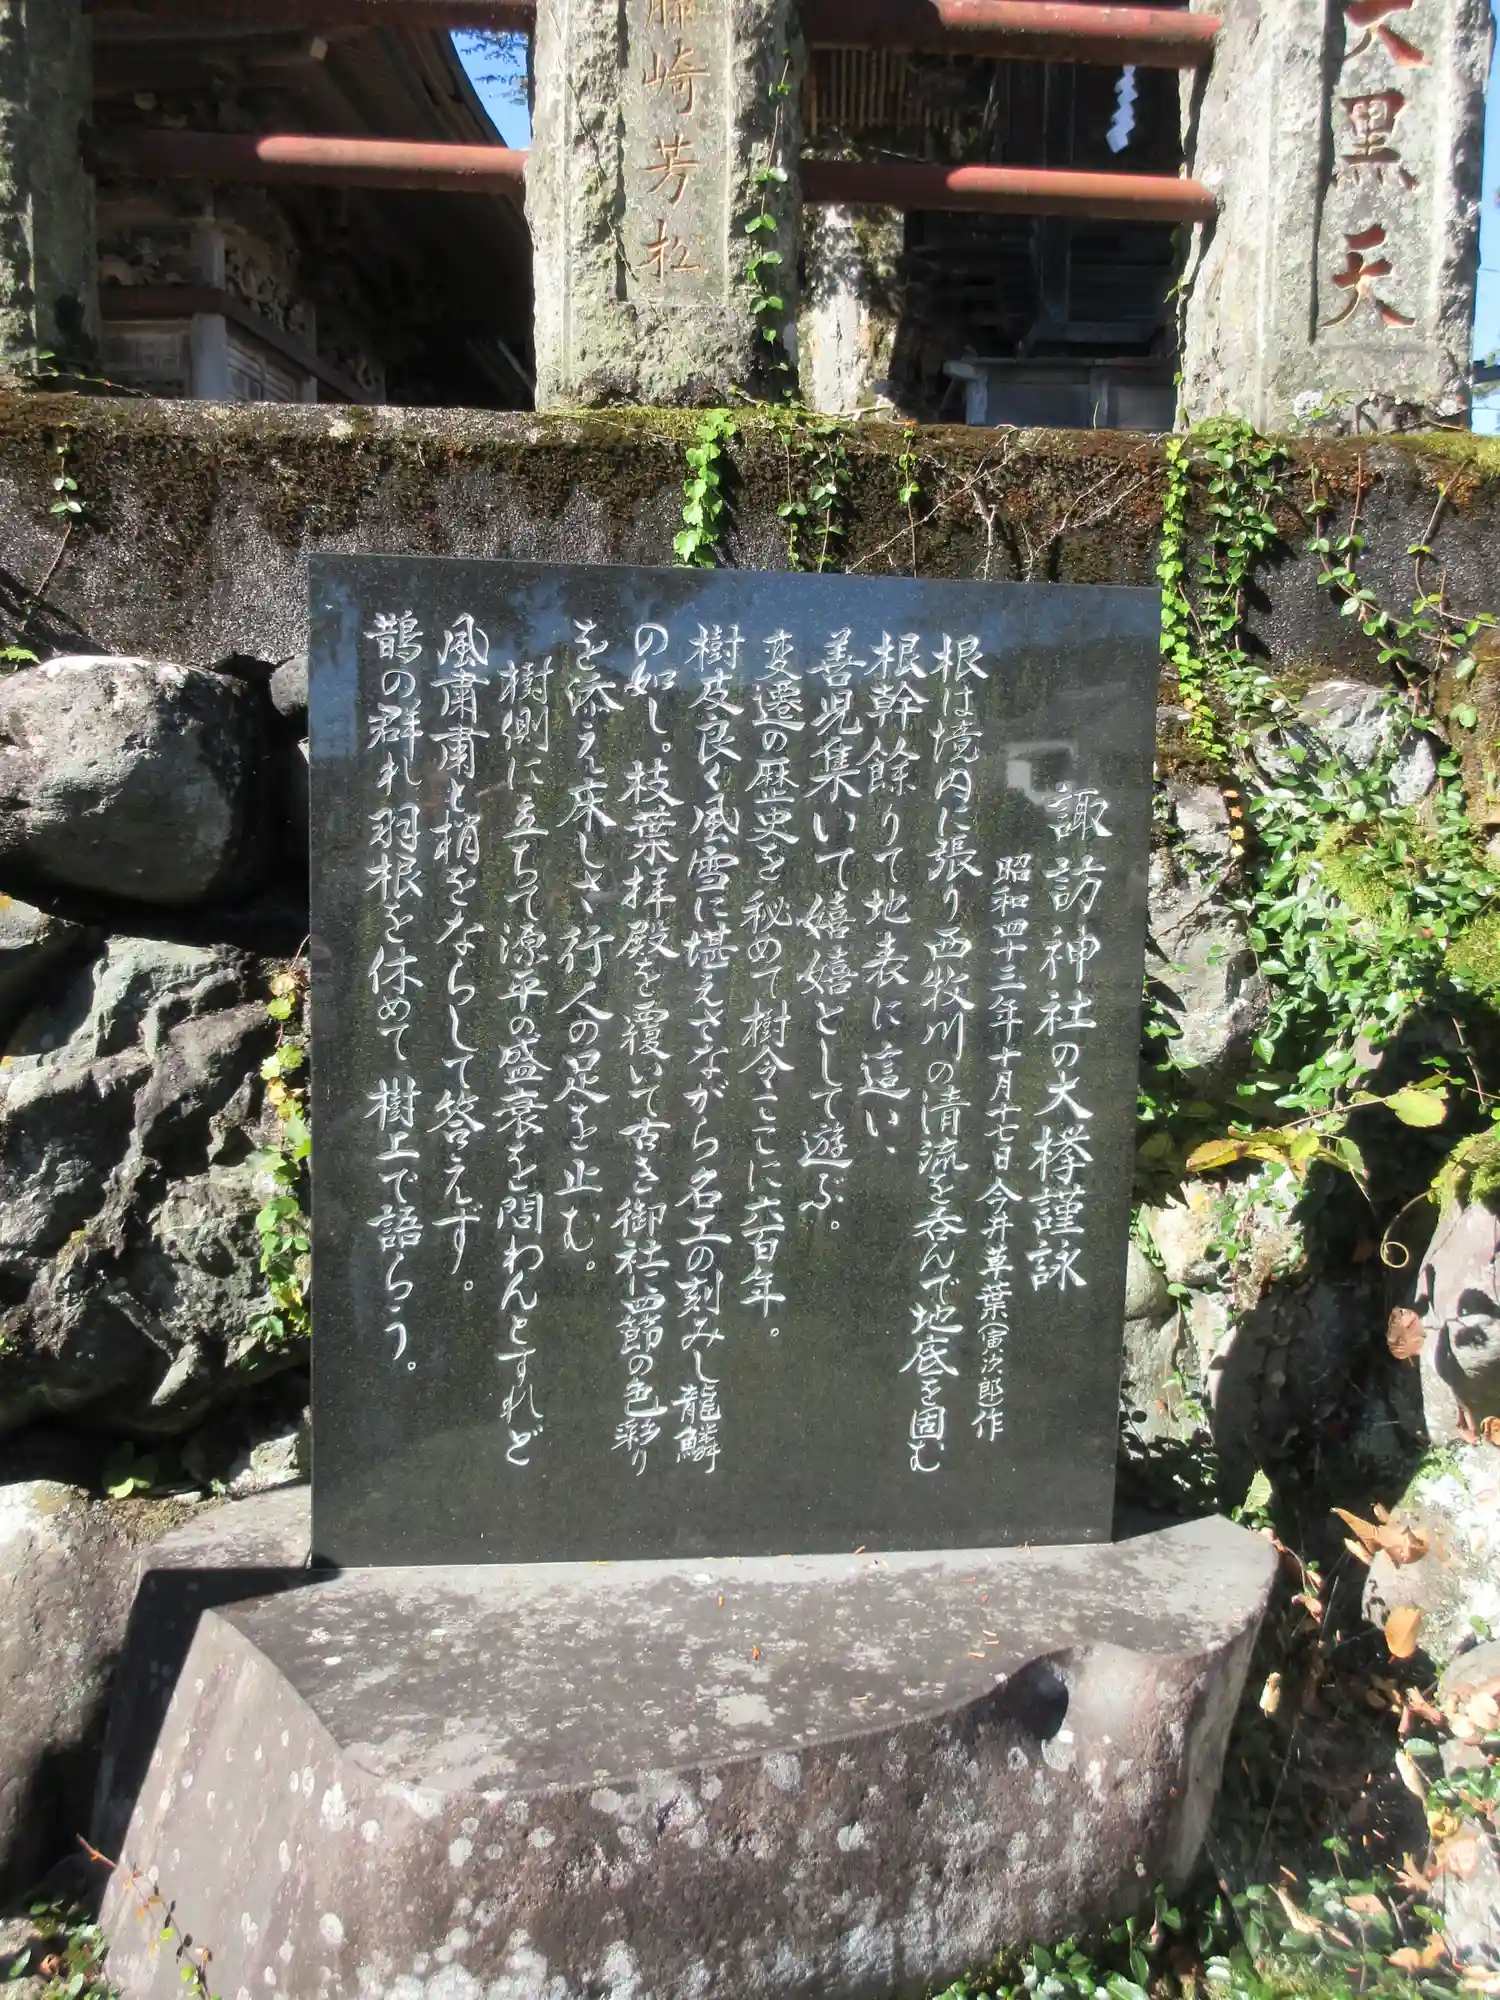 大黒天
藤崎芳松
諏訪神社の大欅謹詠
昭和四十三年十月十七日今井革葉(寅次郎)作
根は境内に張り西牧川の清流を呑んで地底を固む
根幹餘りて地表に這い、
善児集いて嬉嬉として遊ぶ。
変遷の歴史を秘めて樹令ここに六百年。
樹皮良く風雪に堪えさながら名工の刻みし龍鱗
の如し。枝葉拝殿を覆いて古き御社に四節の色彩り
を添え床しさ行人の足を止む。
樹側に立ちて源平の盛衰を問わんとすれど
風粛粛と梢をならして答えず。
鵲の群れ羽根を休めて樹上で語らう。